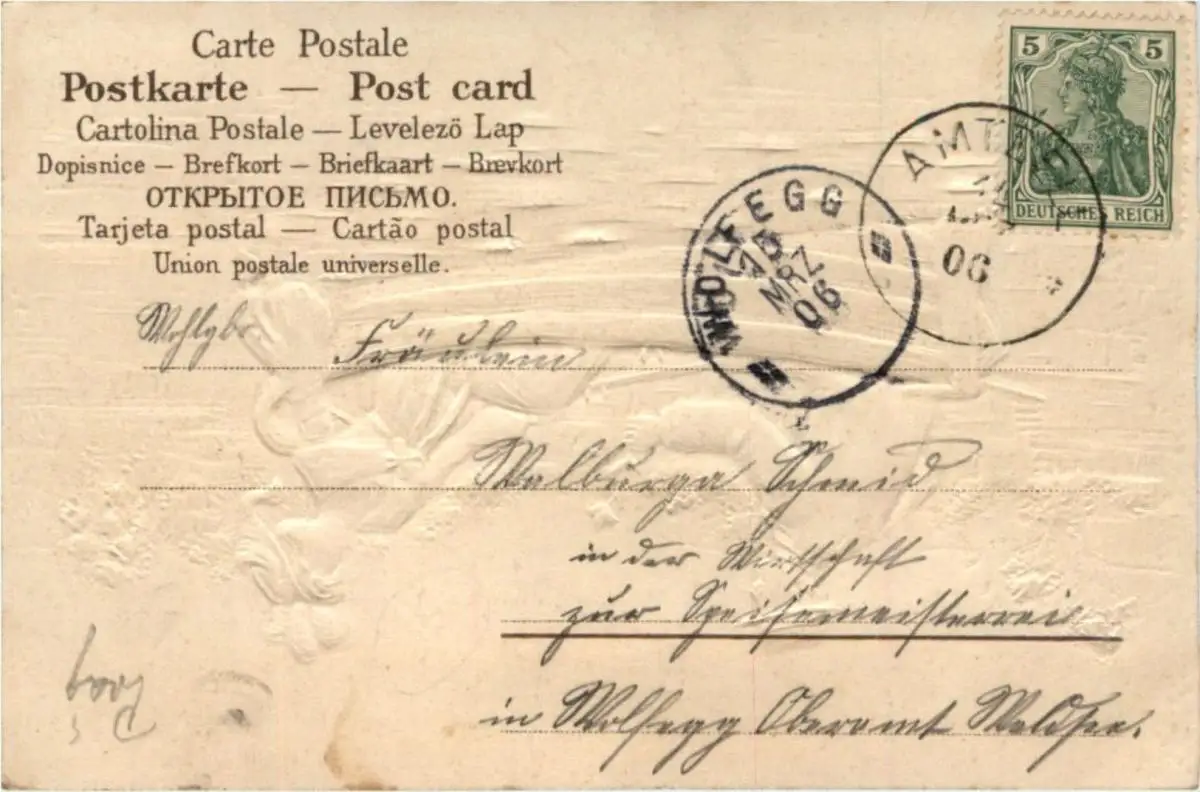 Carte Postale
Postkarte — Post card
Cartolina Postale — Levelező Lap
Dopisnice — Brefkort — Briefkaart — Brevkort
ОТКРЫТОЕ ПИСЬМО.
Tarjeta postal — Cartão postal
Union postale universelle.
5 5
DEUTSCHES REICH
AMTZELL
06
WOLFEGG
15
MRZ
06
Wohlgb.
Fräulein
Walburga Schmid
in der Wirtschaft
zur Speisemeisterrei
in Wolfegg Oberamt Waldsee.